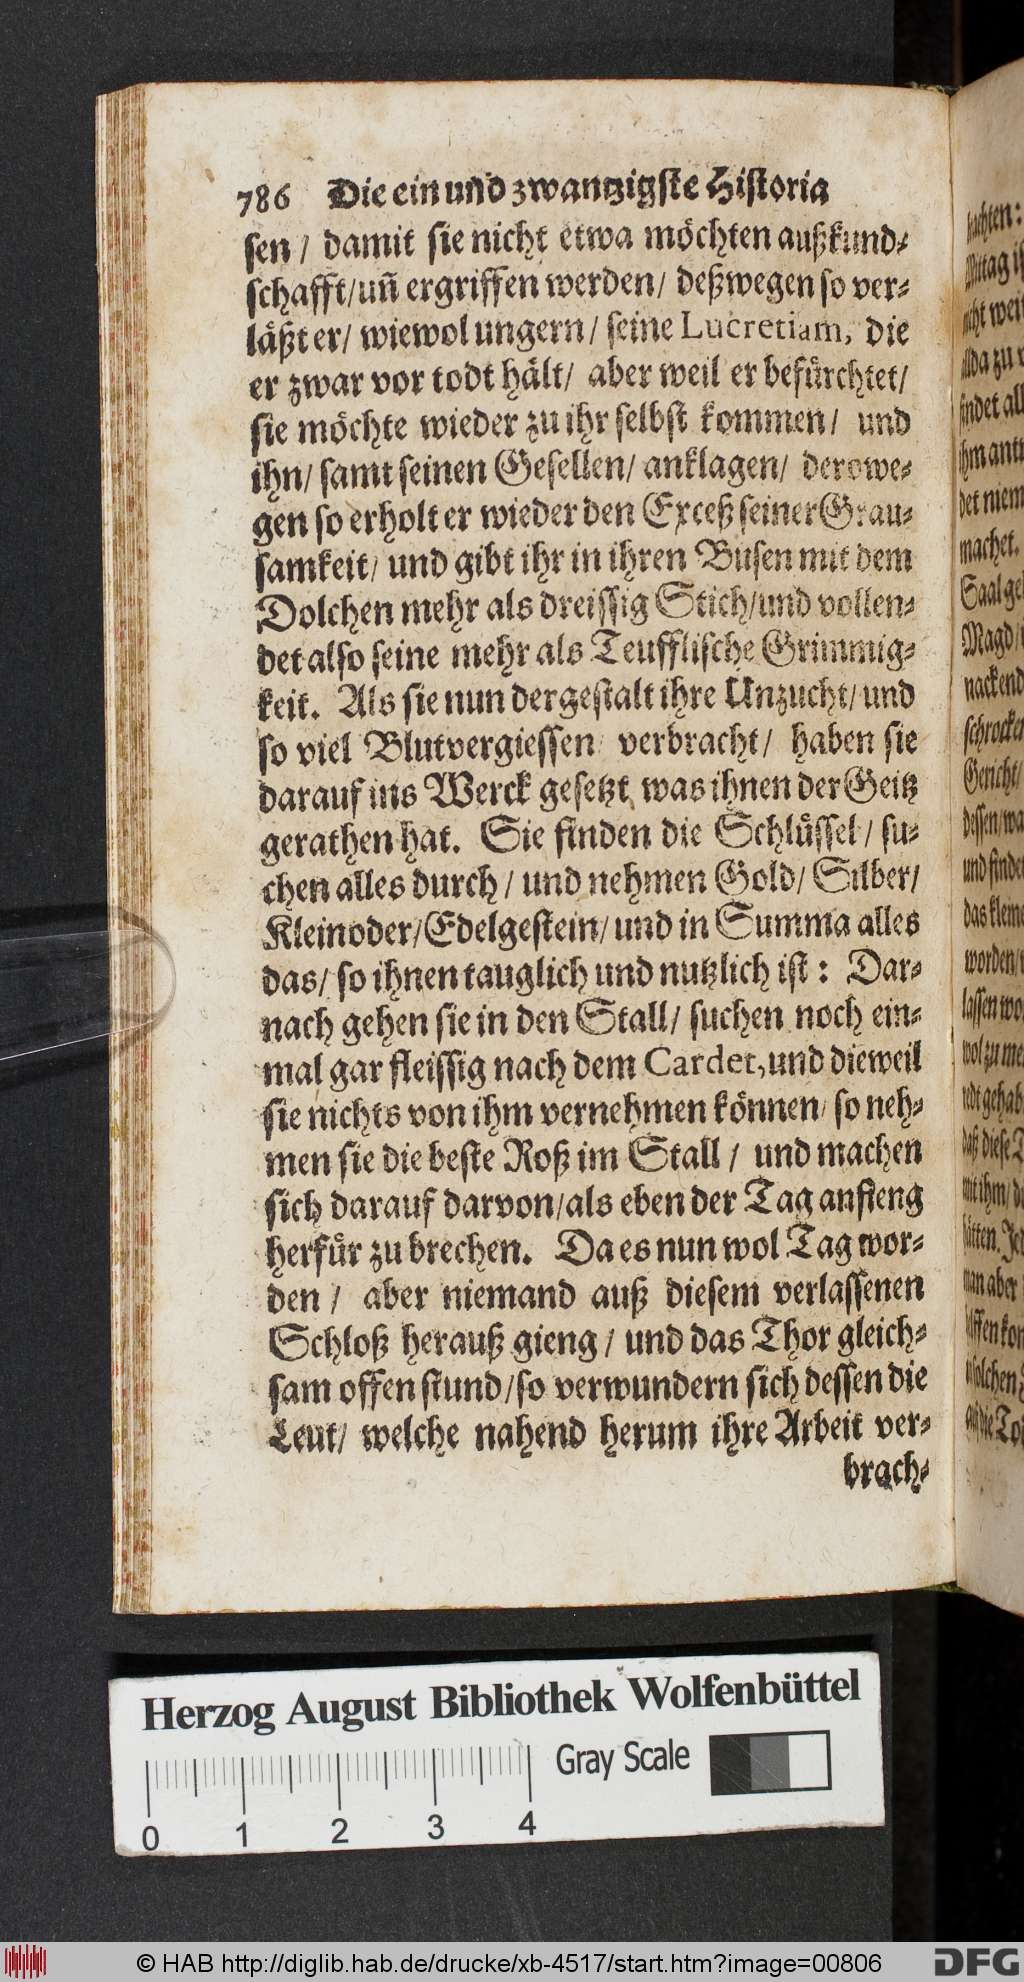 786 Die ein und zwantzigste Historia
sen / damit sie nicht etwa möchten außkund-
schafft/uñ ergriffen werden/ deßwegen so ver-
läßt er/ wiewol ungern/ seine Lucretiam, die
er zwar vor todt hält/ aber weil er befürchtet/
sie möchte wieder zu ihr selbst kommen/ und
ihn/ samt seinen Gesellen/ anklagen/ derowe-
gen so erholt er wieder den Exceß seiner Grau-
samkeit/ und gibt ihr in ihren Busen mit dem
Dolchen mehr als dreissig Stich/und vollen-
det also seine mehr als Teufflische Grimmig-
keit. Als sie nun dergestalt ihre Unzucht/ und
so viel Blutvergiessen/ verbracht/ haben sie
darauf ins Werck gesetzt was ihnen der Geitz
gerathen hat. Sie finden die Schlüssel/ su-
chen alles durch/ und nehmen Gold/ Silber/
Kleinoder/Edelgestein/ und in Summa alles
das/ so ihnen tauglich und nutzlich ist: Dar-
nach gehen sie in den Stall/ suchen noch ein-
mal gar fleissig nach dem Cardet, und dieweil
sie nichts von ihm vernehmen können/ so neh-
men sie die beste Roß im Stall / und machen
sich darauf darvon/als eben der Tag anfieng
herfür zu brechen. Da es nun wol Tag wor-
den / aber niemand auß diesem verlassenen
Schloß herauß gieng / und das Thor gleich-
sam offen stund/so verwundern sich dessen die
Leut/ welche nahend herum ihre Arbeit ver-
brach-
det niem
machet.
Magd/
nackend
Gericht/
und finde
worden/
Herzog August Bibliothek Wolfenbüttel
Gray Scale
0 1 2 3 4
© HAB http://diglib.hab.de/drucke/xb-4517/start.htm?image=00806
DFG